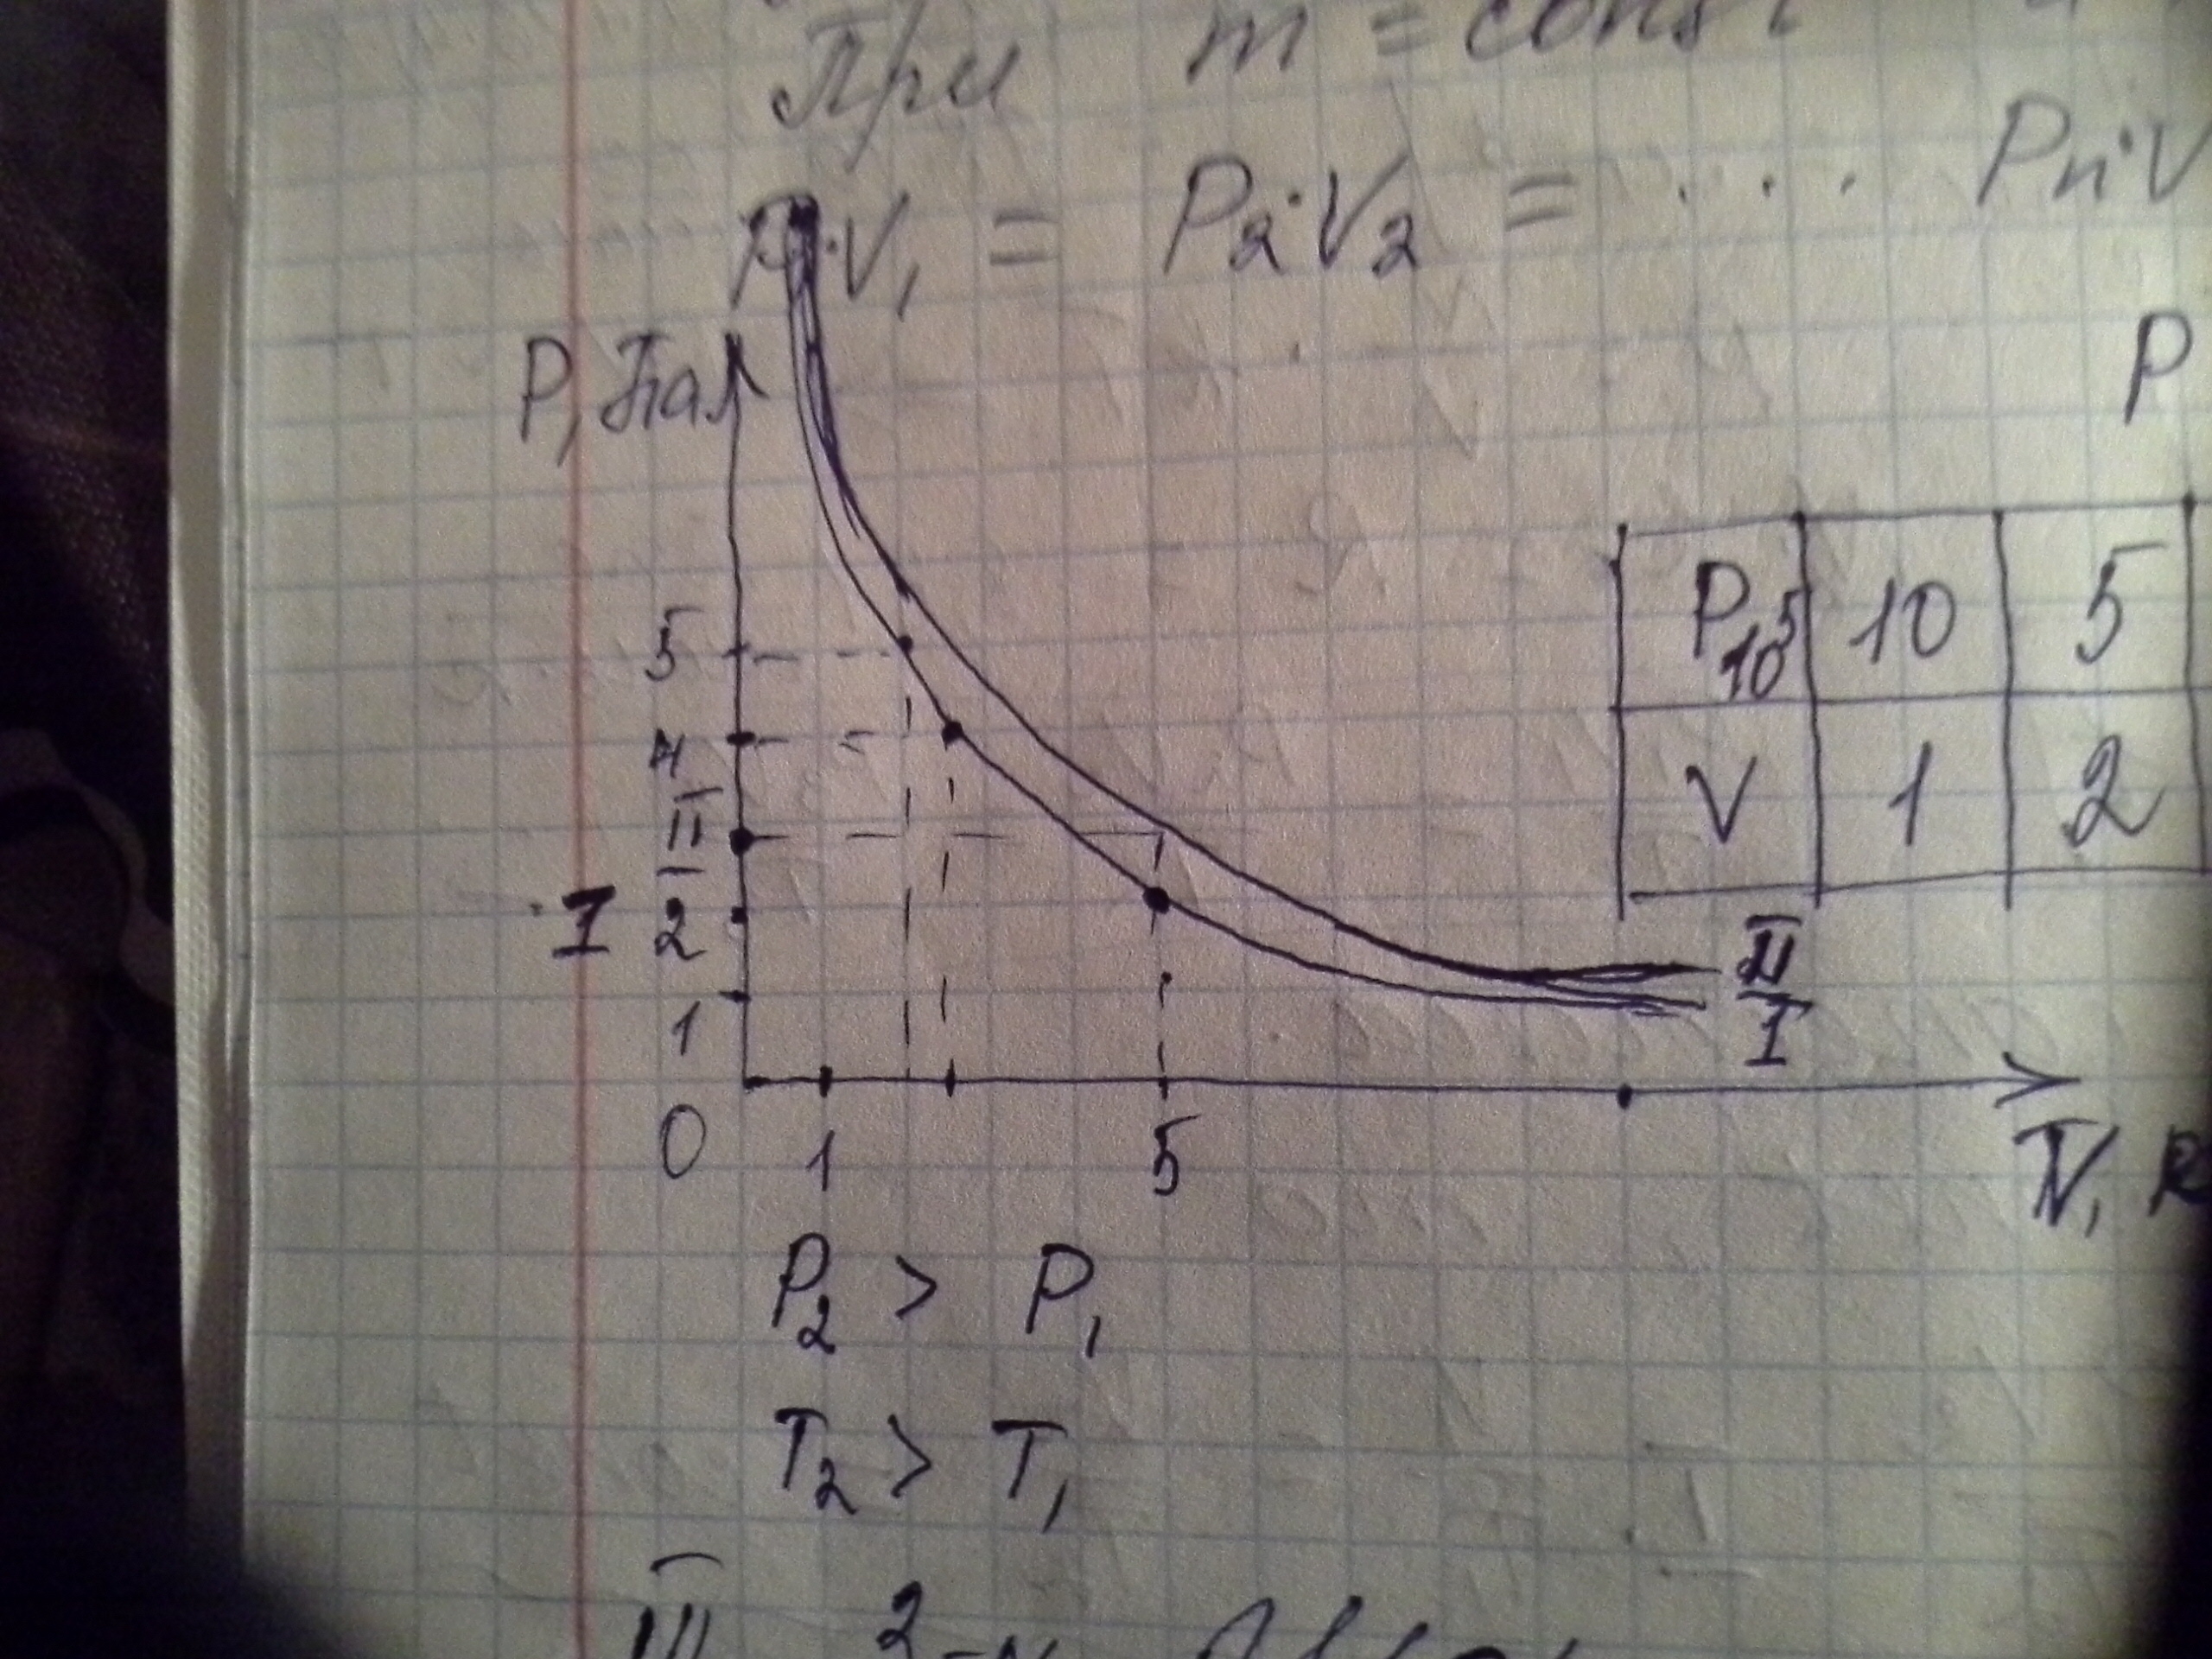 При m = const
P₁·V₁ = P₂·V₂ = . . . Pn·V
P, Па
P
5
4
II
I 2
1
0 1 5
P 10⁵ 10 5
V 1 2
II
I
V,
P₂ > P₁
T₂ > T₁
III 2-й